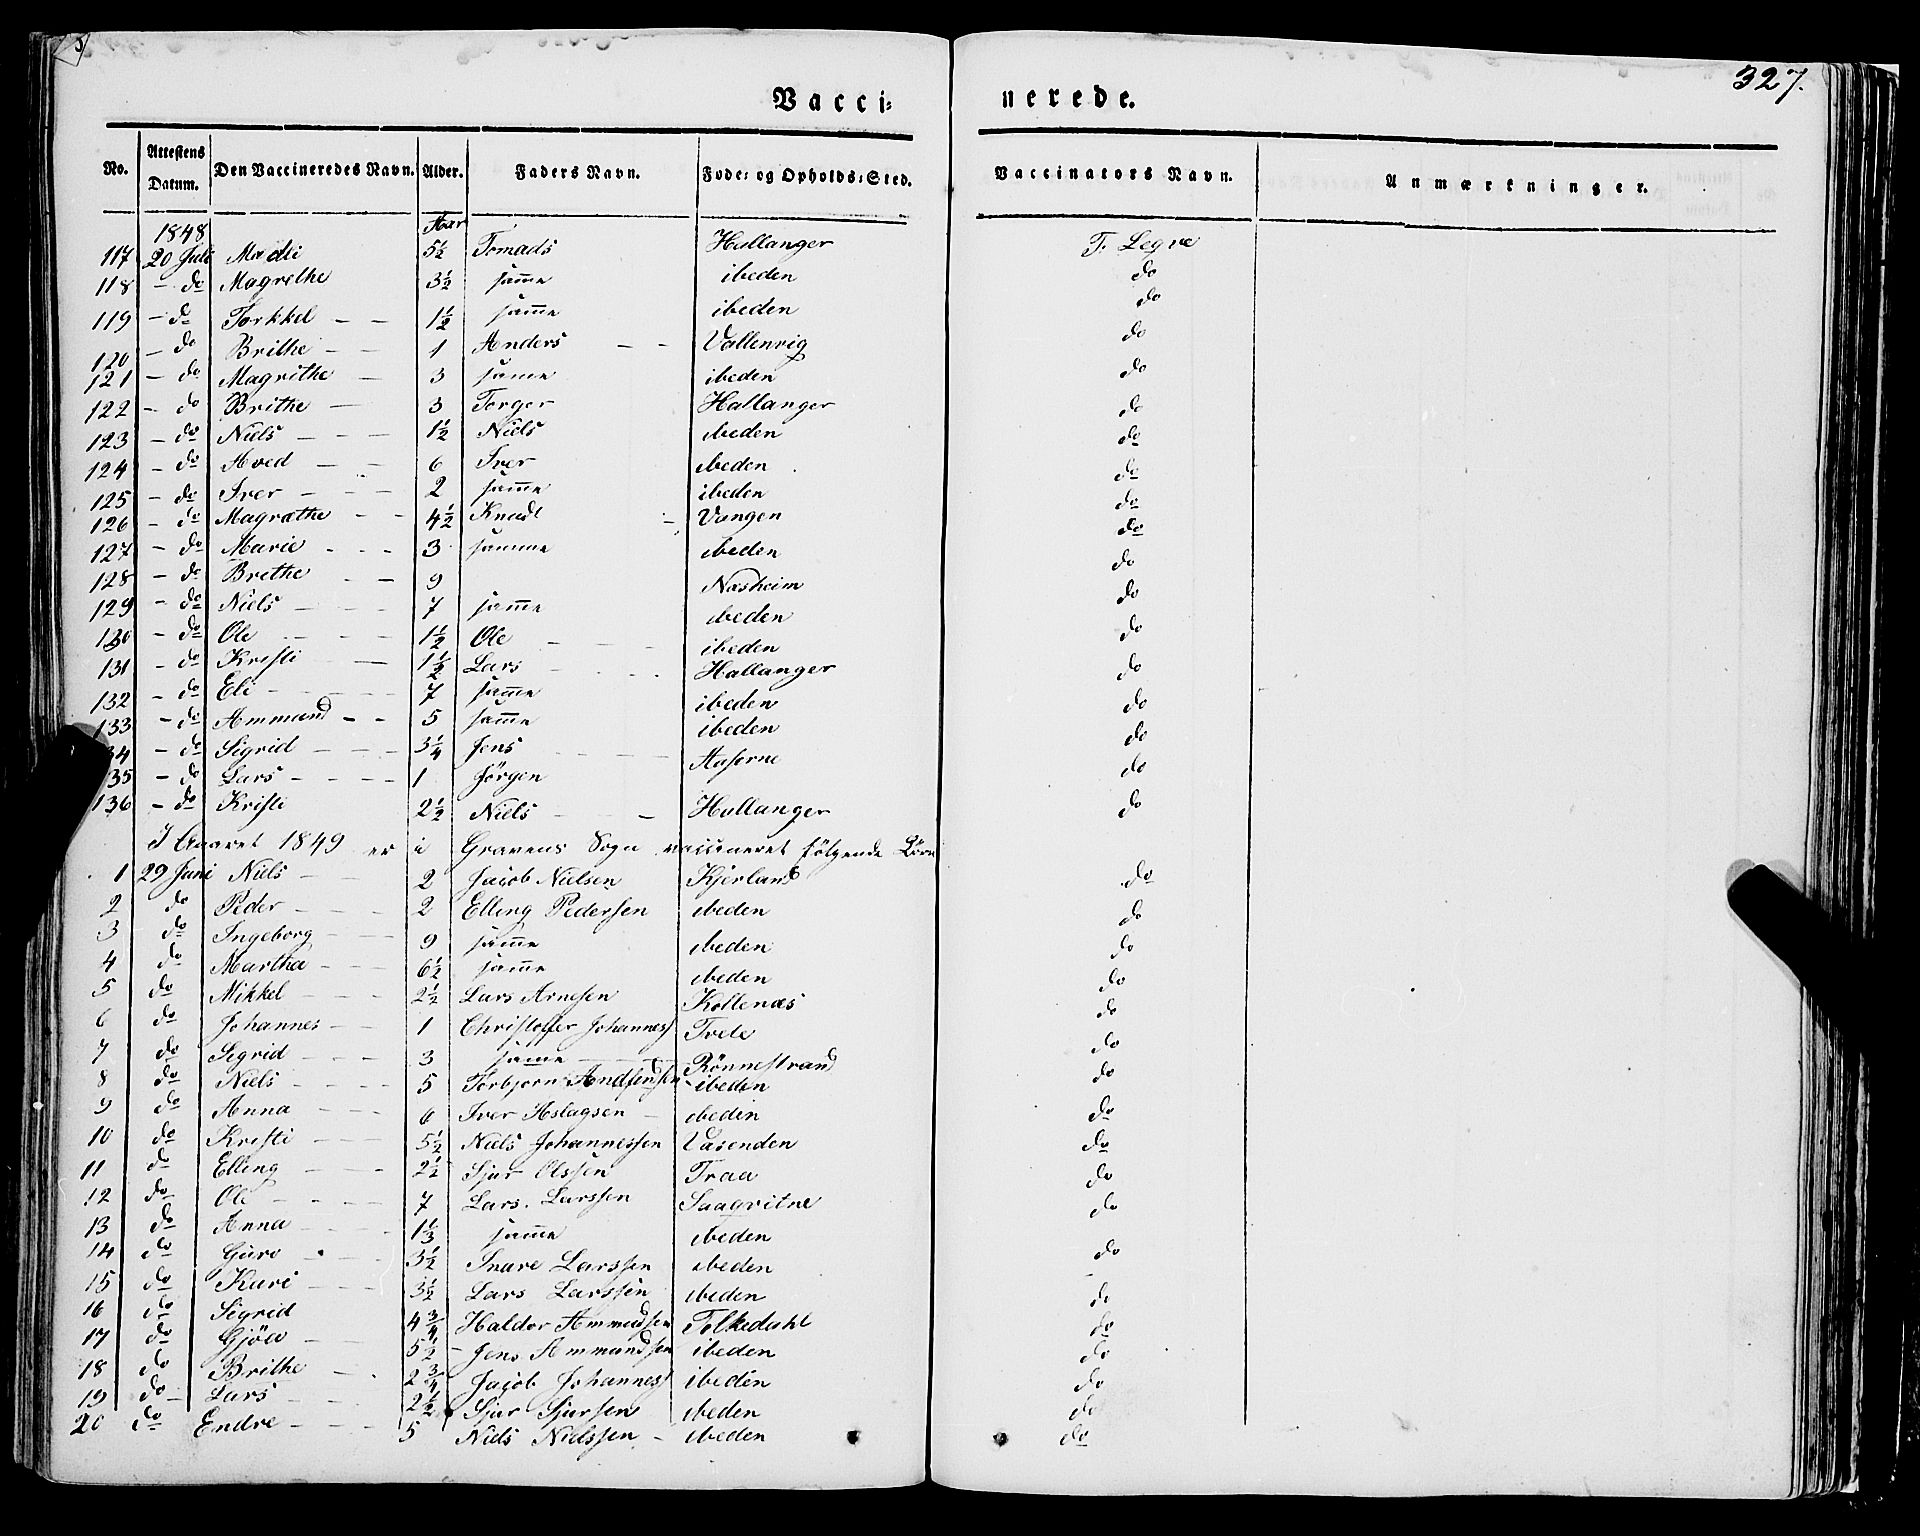 327.
Vacci= nerede.
No. Attestens Datum. Den Vaccineredes Navn. Alder. Faders Navn. Fode= og Opholds=Sted. Vaccinators Navn. Anmærkninger.
1848 Aar
117 20 Juli Madli 5½ Tomads Hallanger T. Legre
118 - do Magrethe 3½ samme ibeden do
119 - do Torkkel - - 1½ samme ibeden do
120 - do Brithe - - 1 Anders - - Vallenvig do
121 - do Magrithe - 3 same ibeden do
122 - do Brithe - 3 Torger Hallanger do
123 - do Niels - - - 1½ Niels ibeden do
124 - do Aved - - 6 Iver ibeden do
125 - do Iver - - - 2 samme ibeden do
126 - do Magrathe - - 4½ Knudt - Vangen do
127 - do Marie - - - 3 samme ibeden do
128 - do Brethe - - 9 Næsheim do
129 - do Niels - - - 7 samme ibeden do
130 - do Ole - - - 1½ Ole - - - ibeden do
131 - do Kristi - - 1½ Lars - - - Hallanger do
132 - do Eli - - - - 7 samme ibeden do
133 - do Ammund - - 5 samme ibeden do
34 - do Sigrid - - - 3¼ Jens - - - Aaserne do
35 - do Lars - - - - 1 Jørgen do
136 - do Kristi 2½ Niels - - - Hallanger do
I Aaret 1849 er i Gravens Sogn vaccineret følgende Børn
1 29 Juni Niels - - 2 Jacob Nielsen Kjerland do
2 do Peder - - - 2 Elling Pedersen ibeden do
3 do Ingeborg - - - 9 samme ibeden do
4 do Martha - - - 6½ samme ibeden do
5 do Mikkel - - - 2½ Lars Arnesen Kollenæs do
6 do Johannes - - 1 Christoffer Johannes Tvete do
7 do Segrid - - - 3 samme - - - Rönnestrand do
8 do Niels - - - 5 Torbjorn - ibeden do
9 do Anna - - - 6 Iver Aslagsen - ibeden do
10 do Kristi - - - 5½ Niels Johannessen Vasenden do
11 do Elling - - - 2½ Sjur Olssen Traa do
12 do Ole - - - - 7 Lars. Larssen Saagvitne do
13 do Anna - - - 1⅓ samme ibeden
14 do Guro - - - 3½ Snare Larssen ibeden do
15 do Kari - - - 3½ Lars Larssen ibeden
16 do Sigrid 4¾ Haldor Ammudsen Folkedahl do
17 do Gjöa - - 5½ - Jens Ammundsen ibeden do
18 do Brithe - - 2¾ Jacob Johannes ibeden do
19 do - Lars - - - 2½ Sjur Sjursen ibeden do
20 do Endre - - - 5 Niels Nielssen - ibeden do
do